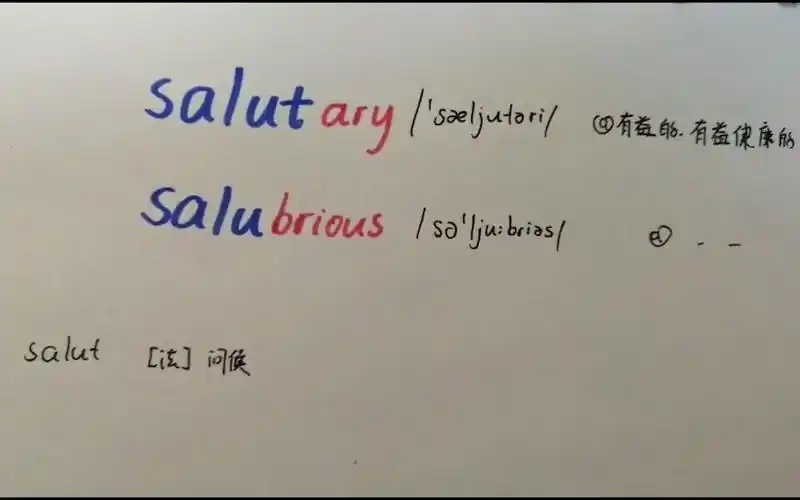 salutary /ˈsæljutəri/ ⓐ有益的. 有益健康的
salubrious /səˈlju:briəs/ ⓐ - -
salut [法] 问候